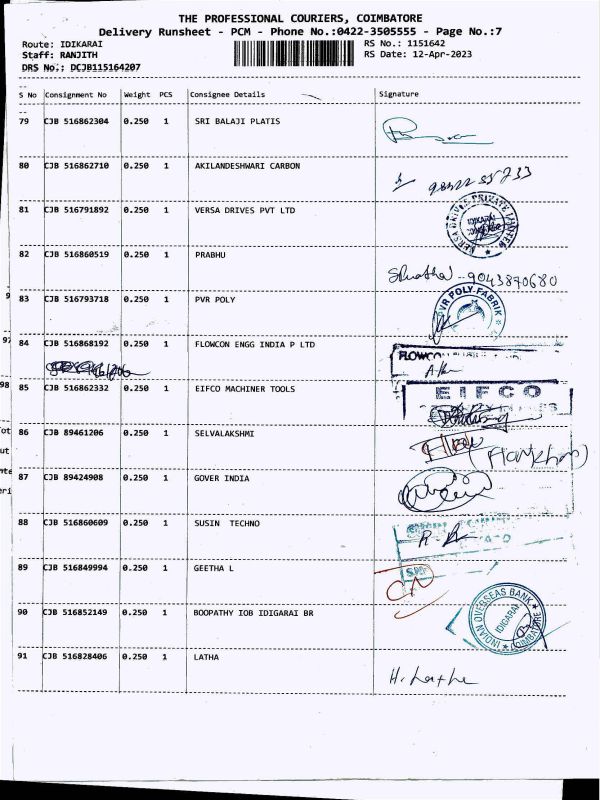 THE PROFESSIONAL COURIERS, COIMBATORE
Delivery Runsheet - PCM - Phone No.:0422-3505555 - Page No.:7
Route: IDIKARAI RS No.: 1151642
Staff: RANJITH RS Date: 12-Apr-2023
DRS No.: DCJB115164207
S No Consignment No Weight PCS Consignee Details Signature
79 CJB 516862304 0.250 1 SRI BALAJI PLATIS
80 CJB 516862710 0.250 1 AKILANDESHWARI CARBON
81 CJB 516791892 0.250 1 VERSA DRIVES PVT LTD
VERSA DRIVES PRIVATE LIMITED
IDIKARAI
82 CJB 516860519 0.250 1 PRABHU
9043870680
83 CJB 516793718 0.250 1 PVR POLY
PVR POLY FABRIK
84 CJB 516868192 0.250 1 FLOWCON ENGG INDIA P LTD
FLOWCON
85 CJB 516862332 0.250 1 EIFCO MACHINER TOOLS
EIFCO
86 CJB 89461206 0.250 1 SELVALAKSHMI
87 CJB 89424908 0.250 1 GOVER INDIA
88 CJB 516860609 0.250 1 SUSIN TECHNO
89 CJB 516849994 0.250 1 GEETHA L
90 CJB 516852149 0.250 1 BOOPATHY IOB IDIGARAI BR
INDIAN OVERSEAS BANK
IDIGARAI
COIMBATORE
91 CJB 516828406 0.250 1 LATHA
H. Latha